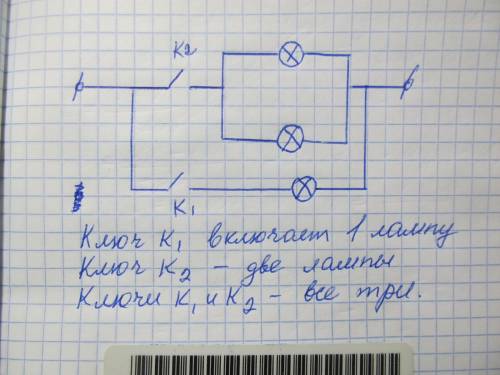 К2
К1
Ключ К1 включает 1 лампу
Ключ К2 – две лампы
Ключи К1 и К2 – все три.